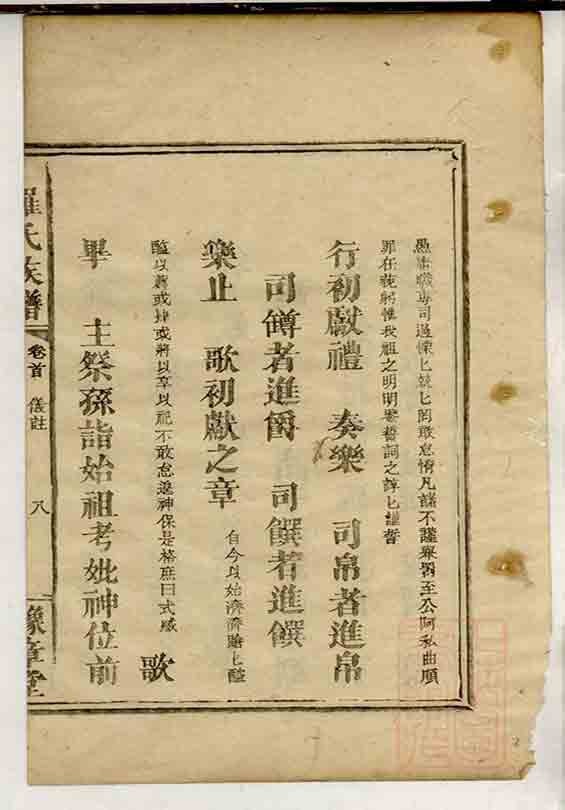 愚職專司過慄匕兢匕罔敢怠惰凡諸不謹察罰至公阿私曲順
罪在藐躬惟我祖之明明鑒誓詞之諄匕謹誓
行初獻禮 奏樂 司帛者進帛
司罇者進爵 司饌者進饌
樂止 歌初獻之章 自今以始濟濟蹌匕醯
醢以薦或肆或將以享以祀不敢怠遑神保是格庶曰式感 歌
畢 主祭孫詣始祖考妣神位前
羅氏族譜 卷首 儀註 八 豫章堂